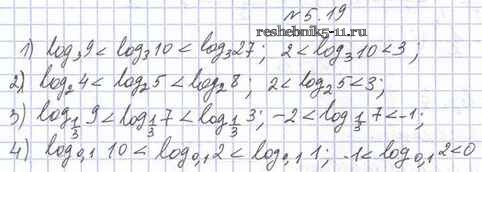 №5.19
reshebnik5-11.ru
1) log₃9 < log₃10 < log₃27; 2 < log₃10 < 3;
2) log₂4 < log₂5 < log₂8; 2 < log₂5 < 3;
3) log_{1/3} 9 < log_{1/3} 7 < log_{1/3} 3; -2 < log_{1/3} 7 < -1;
4) log₀,₁ 10 < log₀,₁ 2 < log₀,₁ 1; -1 < log₀,₁ 2 < 0